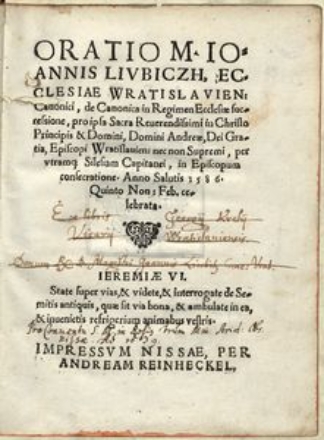 ORATIO M. IO=
ANNIS LIVBICZH, EC-
CLESIAE WRATISLAVIEN:
Canonici, de Canonica in Regimen Ecclesiæ suc-
cessione, pro ipsa Sacra Reuerendissimi in Christo
Principis & Domini, Domini Andreæ, Dei Gra-
tia, Episcopi Wratislauien: nec non Supremi, per
utramq; Silesiam Capitanei, in Episcopum
consecratione. Anno Salutis 1586.
Quinto Non: Feb. ce-
lebrata.
Ex libris Georgij
Vicarij Wratislauiensis
Donum
IEREMIÆ VI.
State super vias, & videte, & interrogate de Se-
mitis antiquis, quæ sit via bona, & ambulate in ea,
& inuenietis refrigerium animabus vestris.
IMPRESSVM NISSAE, PER
ANDREAM REINHECKEL.